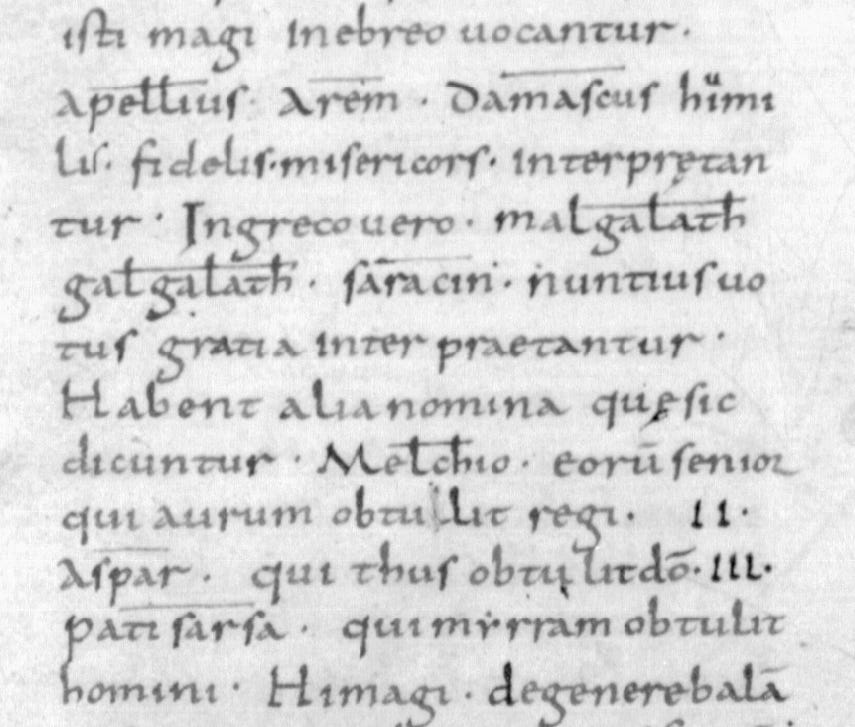 isti magi inebreo uocantur.
apellius. Arem. Damascus humi
lis. fidelis. misericors. interpretan
tur. Ingreco uero. malgalath
galgalath. saracin. nuntius uo
tus gratia inter praetantur.
Habent alia nomina quę sic
dicuntur. Melchio. eorū senior
qui aurum obtullit regi. II.
Aspar. qui thus obtulit dō. III.
patisarsa. qui myrram obtulit
homini. Hi magi. degenere balā